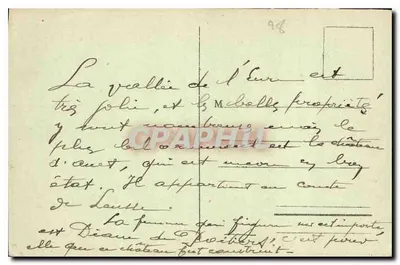 98
La vallée de l'Eure est
très jolie, et les belles propriétés
y sont nombreuses mais le
plus bel ornement est le château
d'Anet, qui est encore en bon
état. Il appartient au comte
de Leusse.
La femme qui figure
est Diane de Poitiers, c'est pour
elle que ce château fut construit.